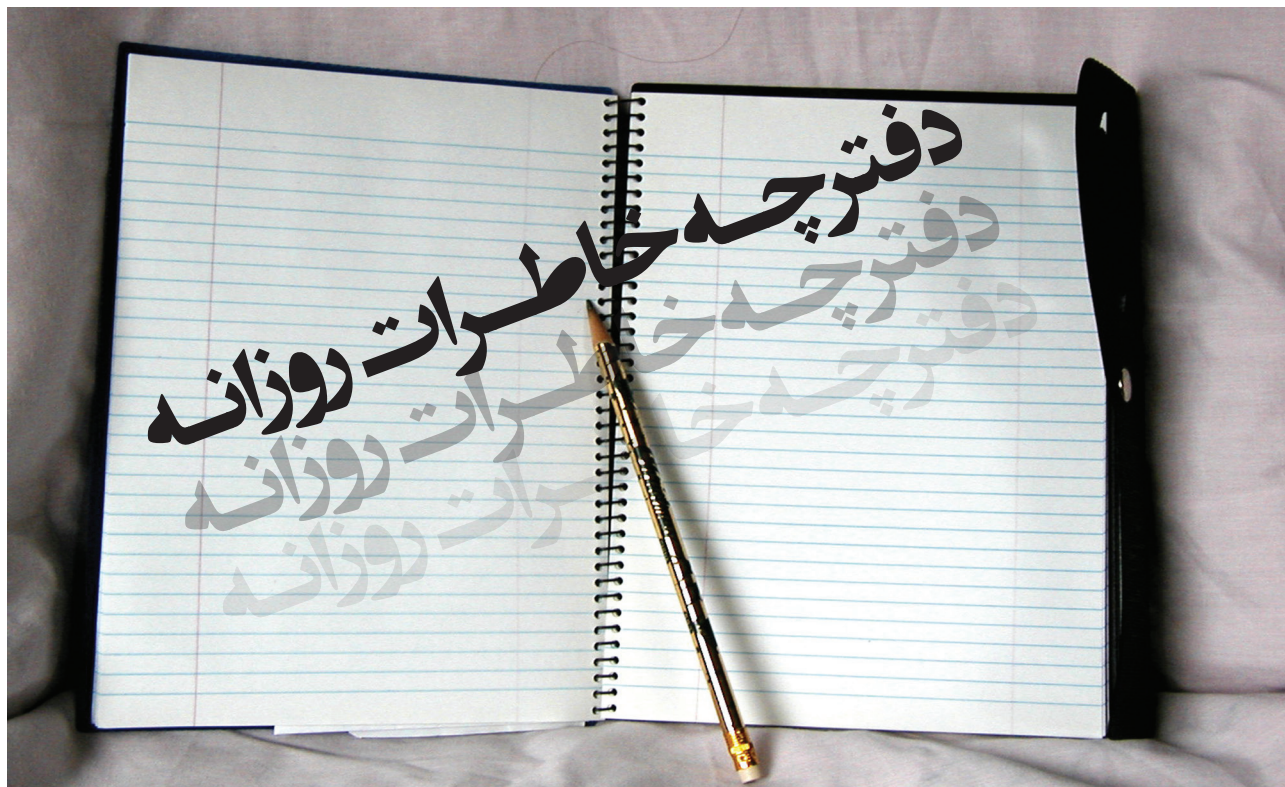 دفترچه خاطرات روزانه
دفترچه خاطرات روزانه
دفترچه خاطرات روزانه